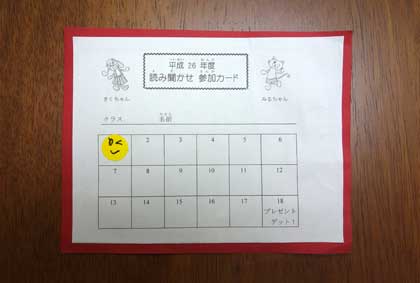 平成 26 年度
読み聞かせ 参加カード
きくちゃん
みるちゃん
クラス
名前
2 3 4 5 6
7 8 9 10 11 12
13 14 15 16 17 18
プレゼント
ゲット!